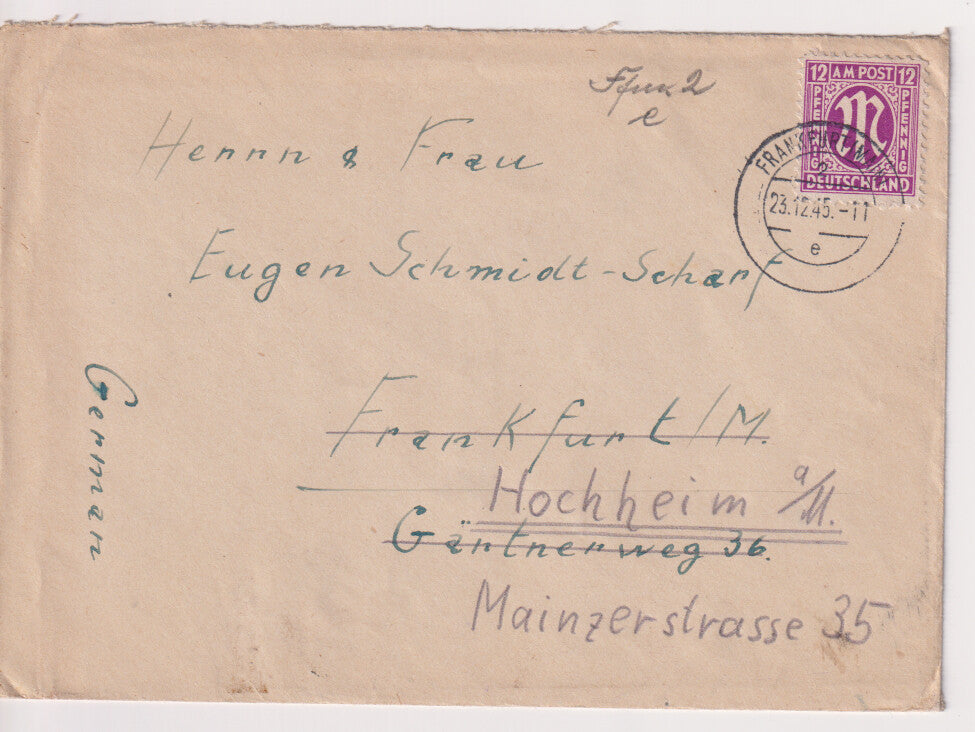 12 AM POST 12
PFENNIG
PFENNIG
M
DEUTSCHLAND
FRANKFURT
23.12.45.-11
e
2
e
Hernnn & Frau
Eugen Schmidt-Scharf
Frankfurt/M.
Hochheim a/M.
Gärtnerweg 36.
Mainzerstrasse 35
German